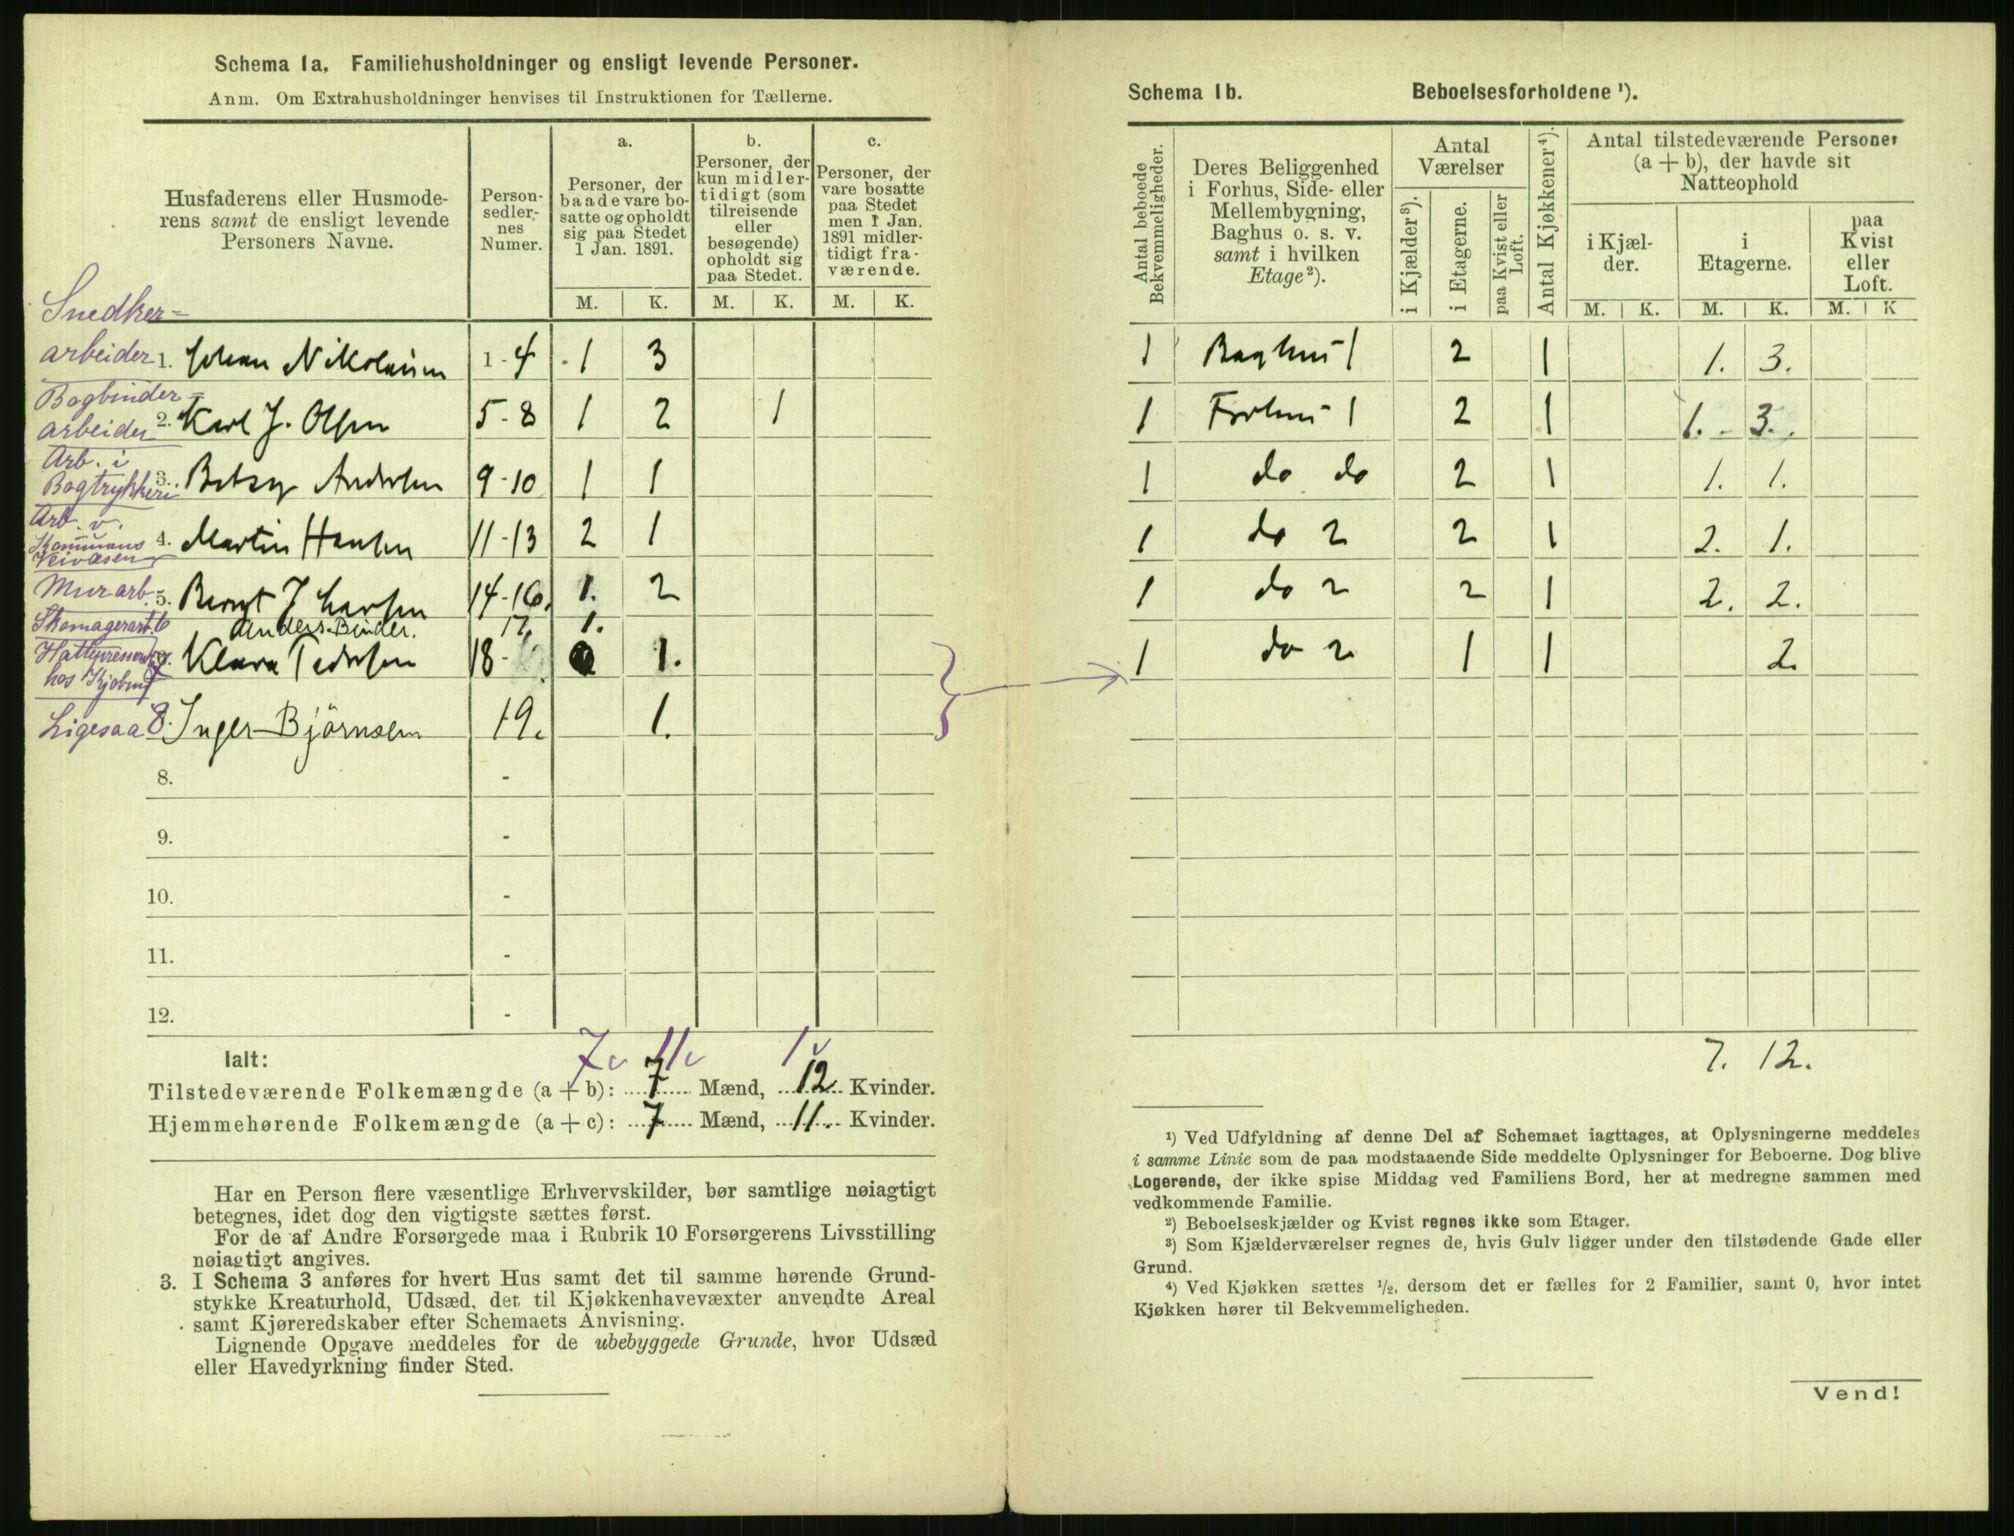 Schema 1a. Familiehusholdninger og ensligt levende Personer.
Anm. Om Extrahusholdninger henvises til Instruktionen for Tællerne.
Husfaderens eller Husmode-
rens samt de ensligt levende
Personers Navne.
Person-
sedler-
nes
Numer.
a.
Personer, der
baade vare bo-
satte og opholdt
sig paa Stedet
1 Jan. 1891.
b.
Personer, der
kun midler-
tidigt (som
tilreisende
eller
besøgende)
opholdt sig
paa Stedet.
c.
Personer, der
vare bosatte
paa Stedet
men 1 Jan.
1891 midler-
tidigt fra-
værende.
M. K. M. K. M. K.
Snedker-
arbeider 1. Johan Nikolaisen 1-4 1 3
Bogbinder-
arbeider 2. Karl J. Olsen 5-8 1 2 1
Arb. i
Bogtrykkeri 3. Betsy Andersen 9-10 1 1
Arb. v.
Kommunens
Veivæsen 4. Martin Hansen 11-13 2 1
Murarb. 5. Bernt J Larsen 14-16. 1. 2
Skomagerarb. 6 Anders Binder. 17. 1.
hos Kjobm 7 Klara Pedersen 18 1.
Ligesaa 8. Inger Björnsen 19. 1.
8. -
9. -
10. -
11. -
12. -
7 11 1
Ialt:
Tilstedeværende Folkemængde (a + b): 7 Mænd, 12 Kvinder.
Hjemmehørende Folkemængde (a + c): 7 Mænd, 11. Kvinder.
Har en Person flere væsentlige Erhvervskilder, bør samtlige nøiagtigt
betegnes, idet dog den vigtigste sættes først.
For de af Andre Forsørgede maa i Rubrik 10 Forsørgerens Livsstilling
nøiagtigt angives.
3. I Schema 3 anføres for hvert Hus samt det til samme hørende Grund-
stykke Kreaturhold, Udsæd, det til Kjøkkenhavevæxter anvendte Areal
samt Kjøreredskaber efter Schemaets Anvisning.
Lignende Opgave meddeles for de ubebyggede Grunde, hvor Udsæd
eller Havedyrkning finder Sted.
Schema 1b. Beboelsesforholdene ¹).
Antal beboede
Bekvemmeligheder.
Deres Beliggenhed
i Forhus, Side- eller
Mellembygning,
Baghus o. s. v.
samt i hvilken
Etage²).
Antal
Værelser
i Kjælder³).
i Etagerne.
paa Kvist eller
Loft.
Antal Kjøkkener⁴).
Antal tilstedeværende Personer
(a + b), der havde sit
Natteophold
i Kjæl-
der.
i
Etagerne.
paa
Kvist
eller
Loft.
M. K. M. K. M. K
1 Baghus 1 2 1 1. 3.
1 Forhus 1 2 1 1. 3.
1 do do 2 1 1. 1.
1 do 2 2 1 2. 1.
1 do 2 2 1 2. 2.
1 do 2 1 1 2.
7. 12.
¹) Ved Udfyldning af denne Del af Schemaet iagttages, at Oplysningerne meddeles
i samme Linie som de paa modstaaende Side meddelte Oplysninger for Beboerne. Dog blive
Logerende, der ikke spise Middag ved Familiens Bord, her at medregne sammen med
vedkommende Familie.
²) Beboelseskjælder og Kvist regnes ikke som Etager.
³) Som Kjælderværelser regnes de, hvis Gulv ligger under den tilstødende Gade eller
Grund.
⁴) Ved Kjøkken sættes ½, dersom det er fælles for 2 Familier, samt 0, hvor intet
Kjøkken hører til Bekvemmeligheden.
Vend!